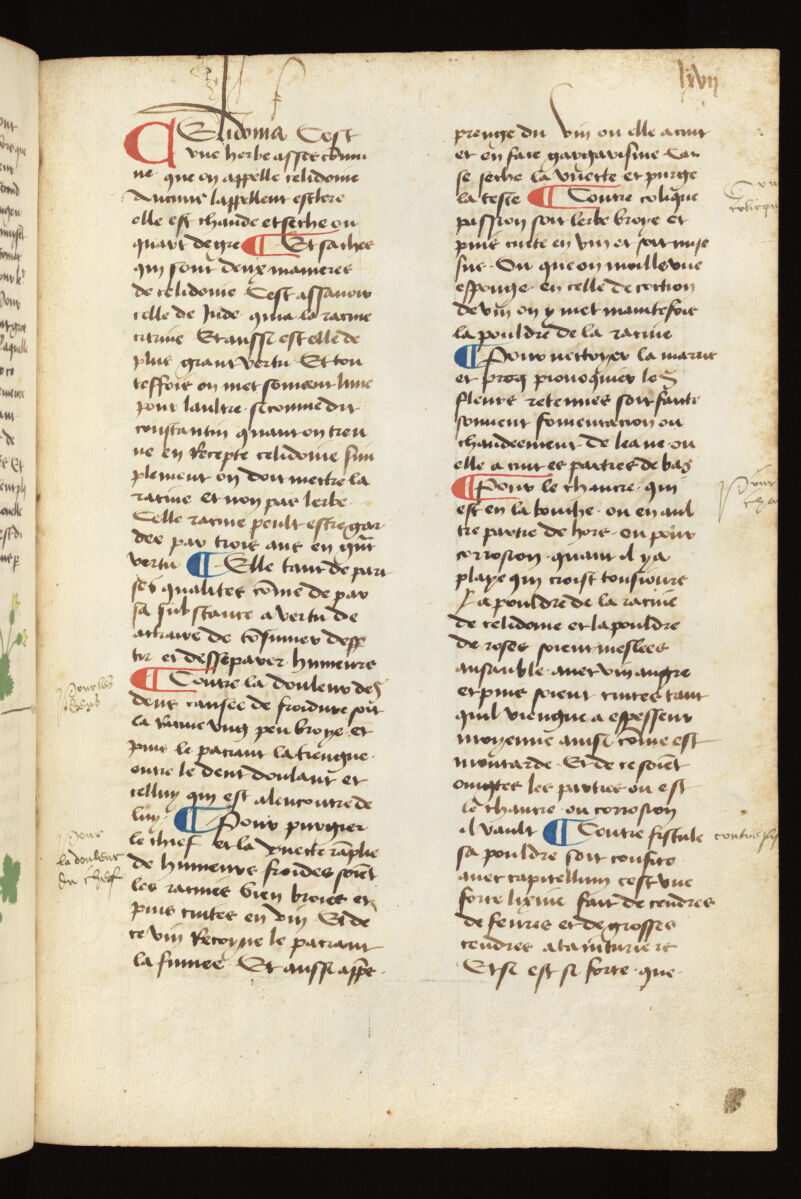 lxvii
CElidoma Cest
vne herbe asses comu
ne que on appelle celidoine
Aucuns lappellent esclere
elle est chaude et seche ou
quart degre ¶ Et saches
quil sont deux manieres
de celidoine Cest assauoir
celle de Jnde qui a la racine
citrine Et aussi est elle de
plus grant vertu Et tou
teffois on met souuent lune
pour laultre si comme dit
constantin quant on treu
ue en Recepte celidoine sim
plement on doit mettre la
racine et non pas lerbe
Celle racine peult estre gar
dee par trois ans en grãt
vertu ¶ Elle tant de par
ses qualites cõme de par
sa substance a vertu de
attraire de cõsumer
et desseparer humeurs
¶ Contre la douleur des
dens causee de froidure soit
la Racine vng peu broye et
puis le pacient la tiengne
entre le dent doulant et
celluy qui est alencontre de
luy ¶ Pour purgier
le chief et la vuette rãplie
de humeurs froides soiẽt
les racines bien broies et
puis cuites en vin Et de
ce vin Recoyue le pacient
la fumee Et aussi apres
prengne du vin ou elle a cuit
et en face gargarisme Car
se seche la vuette et purge
la teste ¶ Contre colique
passion soit lerbe broye et
puis cuite en vin et soit mise
sus Ou que on moille vne
esponge en celle decoction
de vin on y met maintefois
la pouldre de la racine
¶ Pour nettoyer la marris
et pour prouoquier les
fleurs retenues soit faicte
souuent fomentacion ou
chaudeement de leaue ou
elle a cuit es parties de bas
¶ Pour le chancre qui
est en la bouche ou en aul
tre partie de hors ou pour
corrosion quant il y a
playe qui croist tousiours
la pouldre de la racine
de celidoine et la pouldre
de roses soient meslees
ansamble auec vin aigre
et puis soient cuites tant
quil viengne a espesseur
moyenne ainsi cõme est
moutarde Et de ce soiẽt
ointes les parties ou est
le chancre ou corrosion
il vault ¶ Contre fistule
sa pouldre soit confite
auec capitellum cest vne
forte lixiue faite de cendres
de feures et de grosses
cendres a tainturiers
Et si est si forte que
pour les
dens
pour
la douleur
du chief
pour
contre